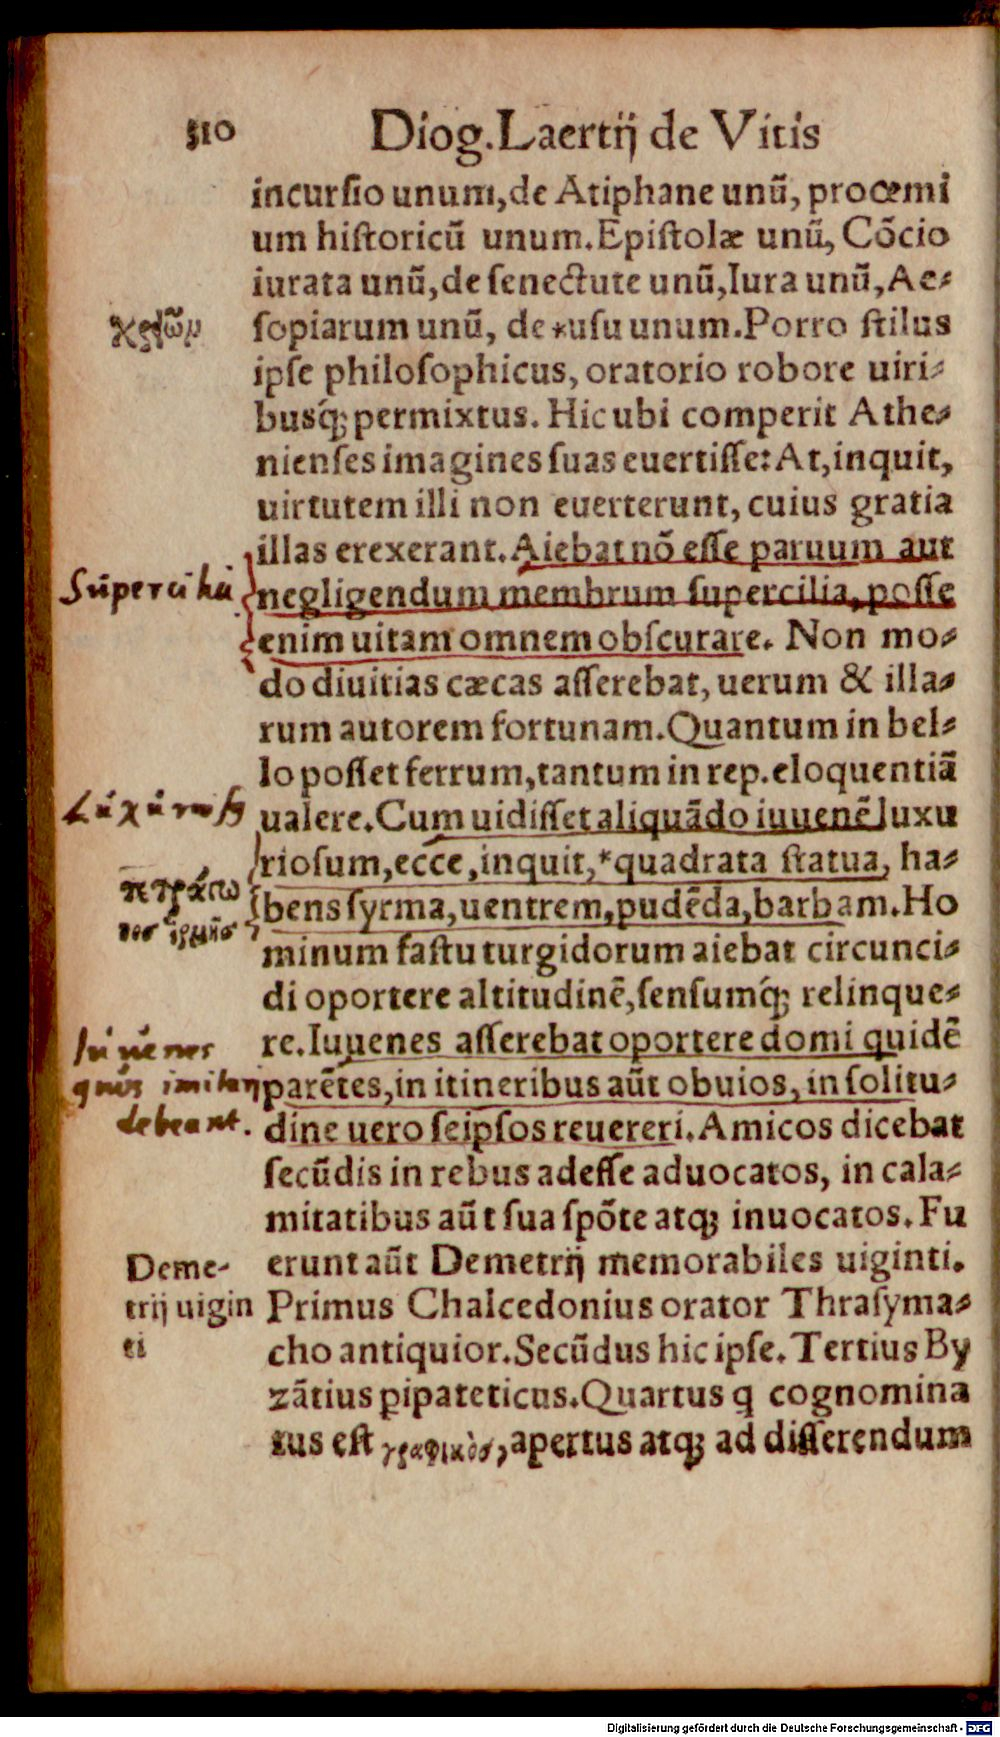 310 Diog.Laertij de Vitis
incursio unum,de Atiphane unũ, procemi
um historicũ unum.Epistolæ unũ, Cõcio
iurata unũ,de senectute unũ,Iura unũ,Ae-
χρειῶν
sopiarum unũ, de *usu unum.Porro stilus
ipse philosophicus, oratorio robore uiri-
busq́; permixtus. Hic ubi comperit Athe-
nienses imagines suas euertisse: At,inquit,
uirtutem illi non euerterunt, cuius gratia
illas erexerant.Aiebat nõ esse paruum aut
Supercilia
negligendum membrum supercilia, posse
enim uitam omnem obscurare. Non mo-
do diuitias cæcas asserebat, uerum & illa-
rum autorem fortunam.Quantum in bel-
lo posset ferrum,tantum in rep.eloquentiã
ualere.Cum uidisset aliquãdo iuuenẽ luxu
riosum,ecce,inquit,*quadrata statua, ha-
τετράγω
bens syrma,uentrem,pudẽda,barbam.Ho
νος ἑρμῆς
minum fastu turgidorum aiebat circunci-
di oportere altitudinẽ,sensumq́; relinque-
Iuuenes
re.Iuuenes asserebat oportere domi quidẽ
quos imitari
parẽtes,in itineribus aũt obuios, in solitu-
debeant.
dine uero seipsos reuereri.Amicos dicebat
secũdis in rebus adesse aduocatos, in cala-
mitatibus aũt sua spõte atq; inuocatos.Fu
Deme-
erunt aũt Demetrij memorabiles uiginti.
trij uigin
Primus Chalcedonius orator Thrasyma-
ti
cho antiquior.Secũdus hic ipse. Tertius By
zãtius p̱ipateticus.Quartus q cognomina
tus est γραφικὸς, apertus atq; ad disserendum
Digitalisierung gefördert durch die Deutsche Forschungsgemeinschaft - DFG